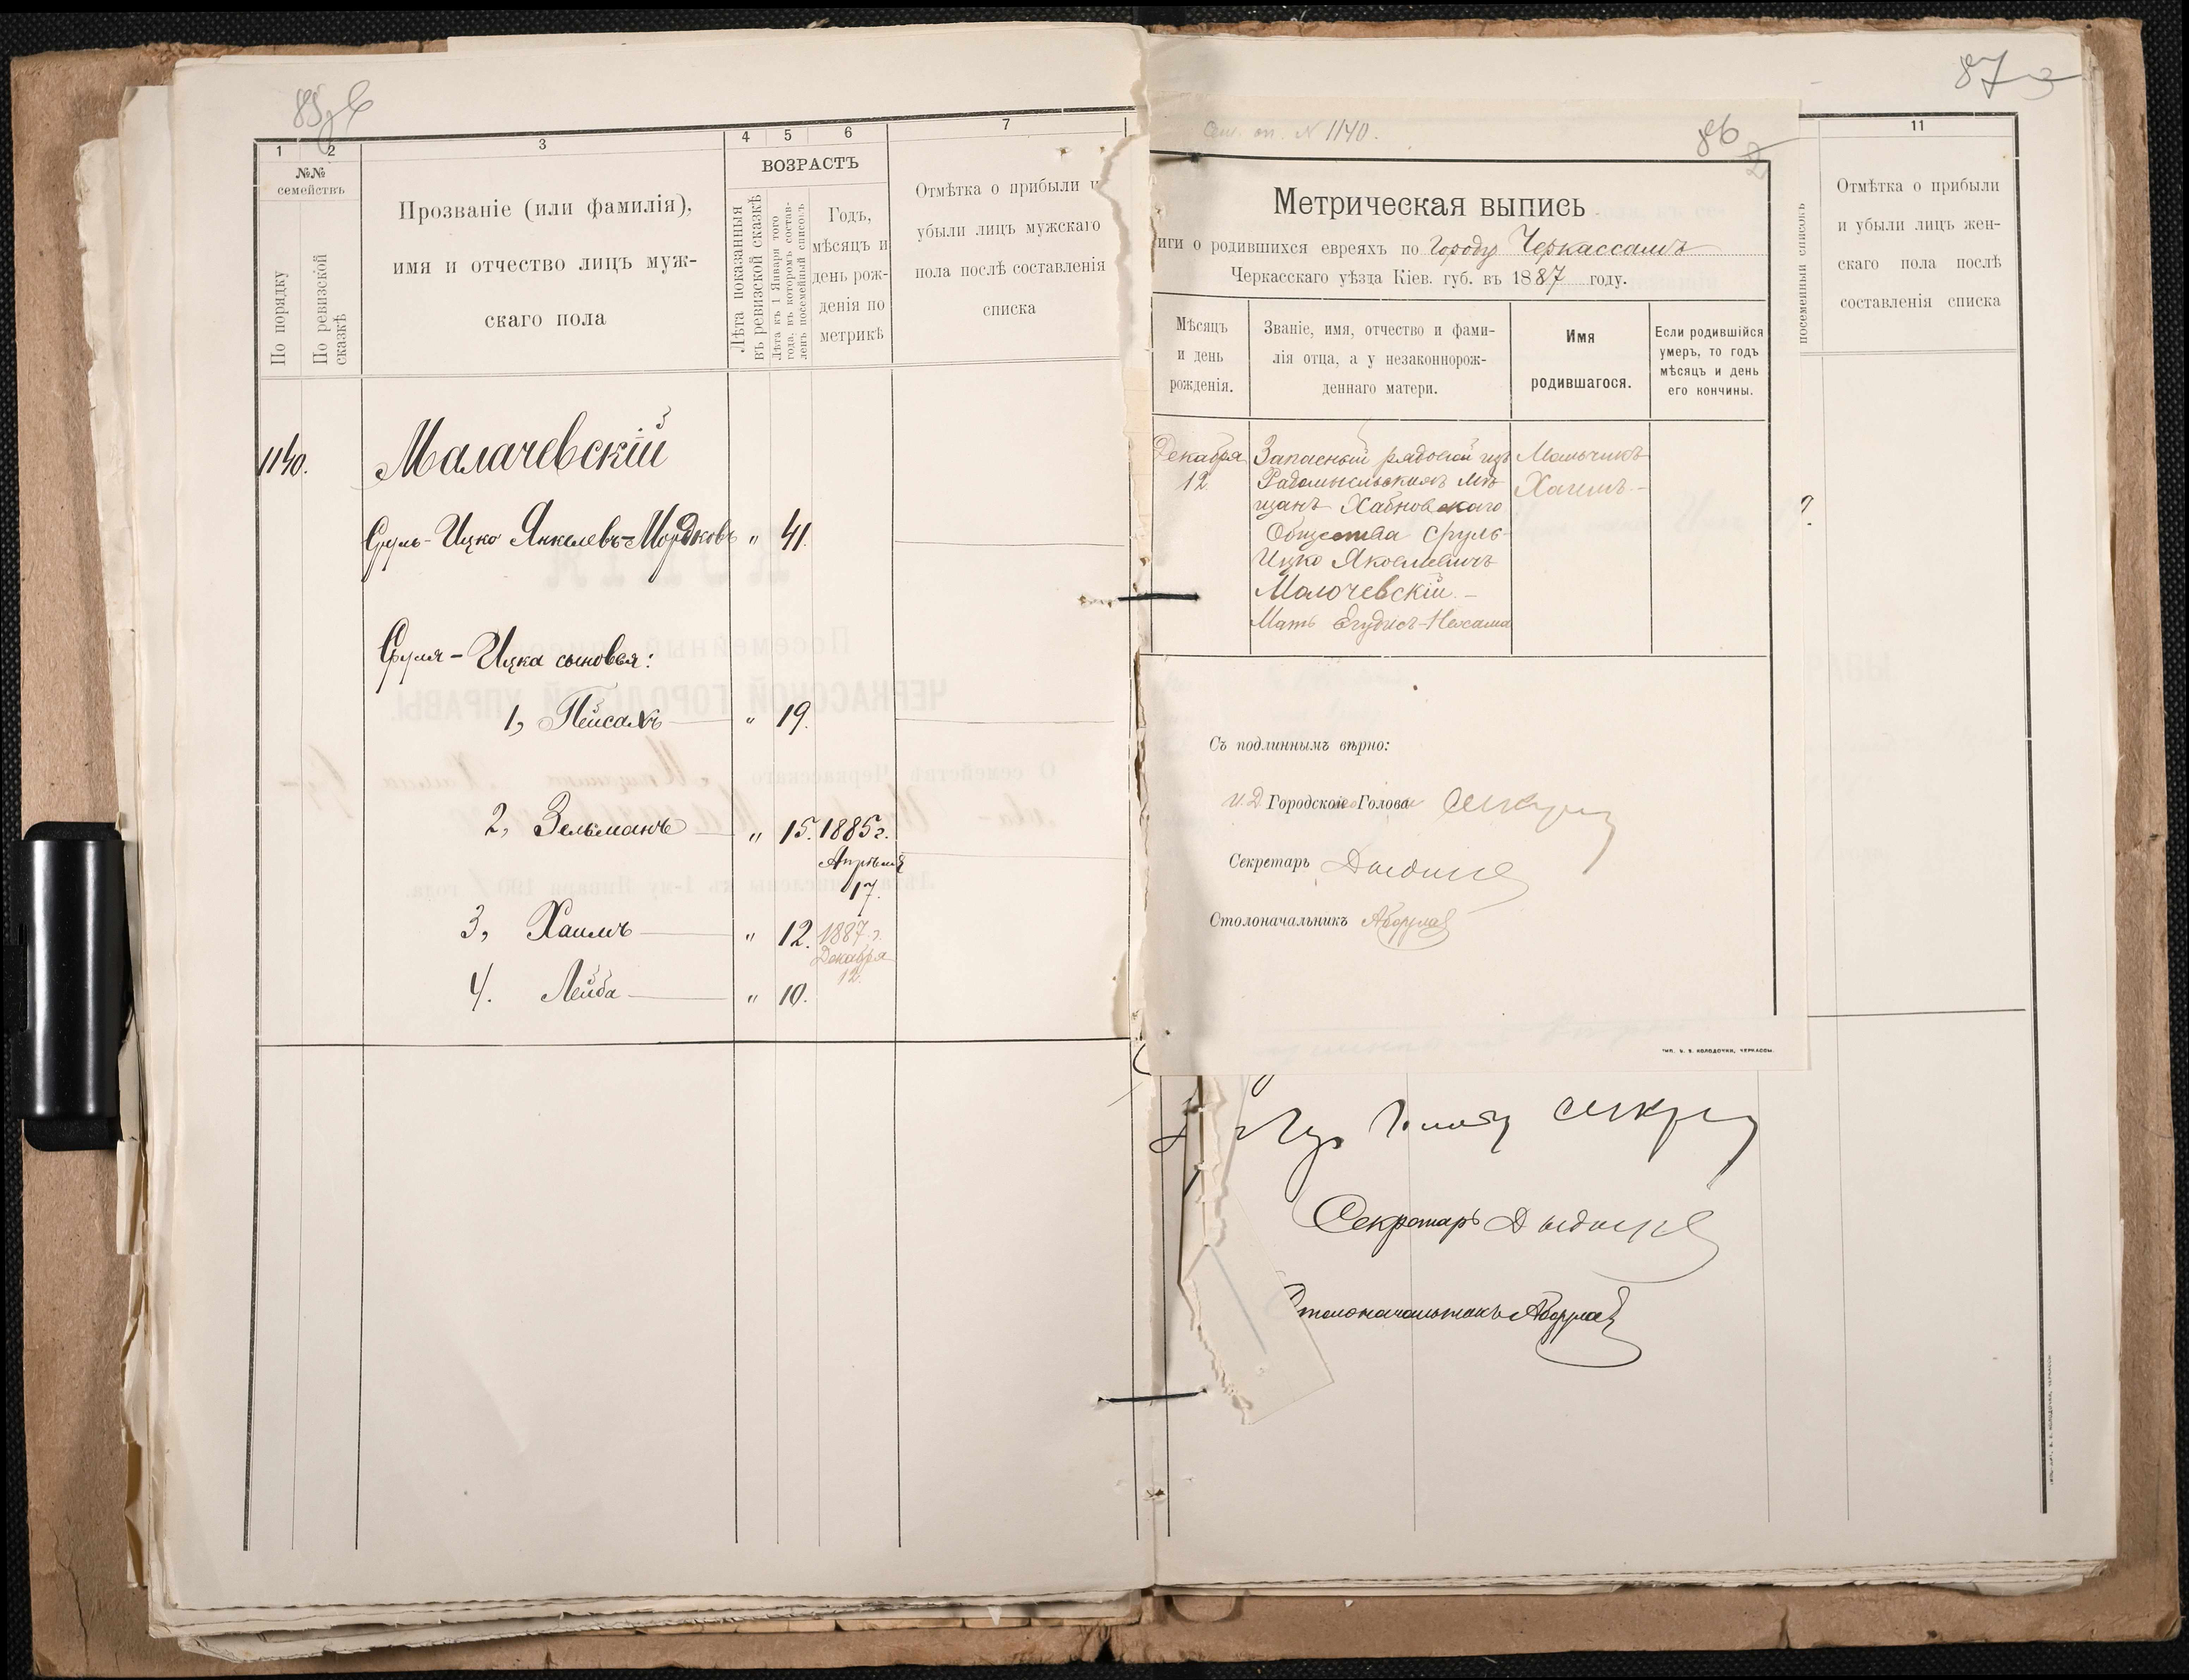 85
1 2 3 4 5 6 7
№№
семействъ
По порядку
По ревизской сказкѣ
Прозваніе (или фамилія),
имя и отчество лицъ муж-
скаго пола
ВОЗРАСТЪ
Лѣта показанныя
въ ревизской сказкѣ
Лѣта къ 1 Января того
года, въ которомъ состав-
ленъ посемейный списокъ
Годъ,
мѣсяцъ и
день рож-
денія по
метрикѣ
Отмѣтка о прибыли и
убыли лицъ мужскаго
пола послѣ составленія
списка
1140. Малачевскій
Сруль-Ицко Янкелевъ-Мордковъ " 41.
Сруля-Ицка сыновья:
1, Пейсахъ " 19.
2, Зельманъ " 15. 1885 г.
Апрѣля
17.
3, Хаимъ " 12. 1887 г.
Декабря
12.
4. Лейба " 10.
87
Сем. сп. № 1140.
86
Метрическая выпись
иги о родившихся евреяхъ по Городу Черкассамъ
Черкасскаго уѣзда Кіев. губ. въ 1887 году.
Мѣсяцъ
и день
рожденія.
Званіе, имя, отчество и фами-
лія отца, а у незаконнорож-
деннаго матери.
Имя
родившагося.
Если родившійся
умеръ, то годъ
мѣсяцъ и день
его кончины.
Декабря
12.
Запасный рядовой изъ
Радомысльскихъ мѣ-
щанъ Хабновскаго
Общества Сруль-
Ицко Яковлевичъ
Малочевскій.-
Мать Егудисъ-Нехама
Мальчикъ
Хаимъ.-
Съ подлиннымъ вѣрно:
И. Д. Городского Головы
Секретарь
Столоначальникъ
ТИП. В. В. КОЛОДОЧКИ, ЧЕРКАССЫ.
11
посемейный списокъ
Отмѣтка о прибыли
и убыли лицъ жен-
скаго пола послѣ
составленія списка
Секретарь
Столоначальникъ